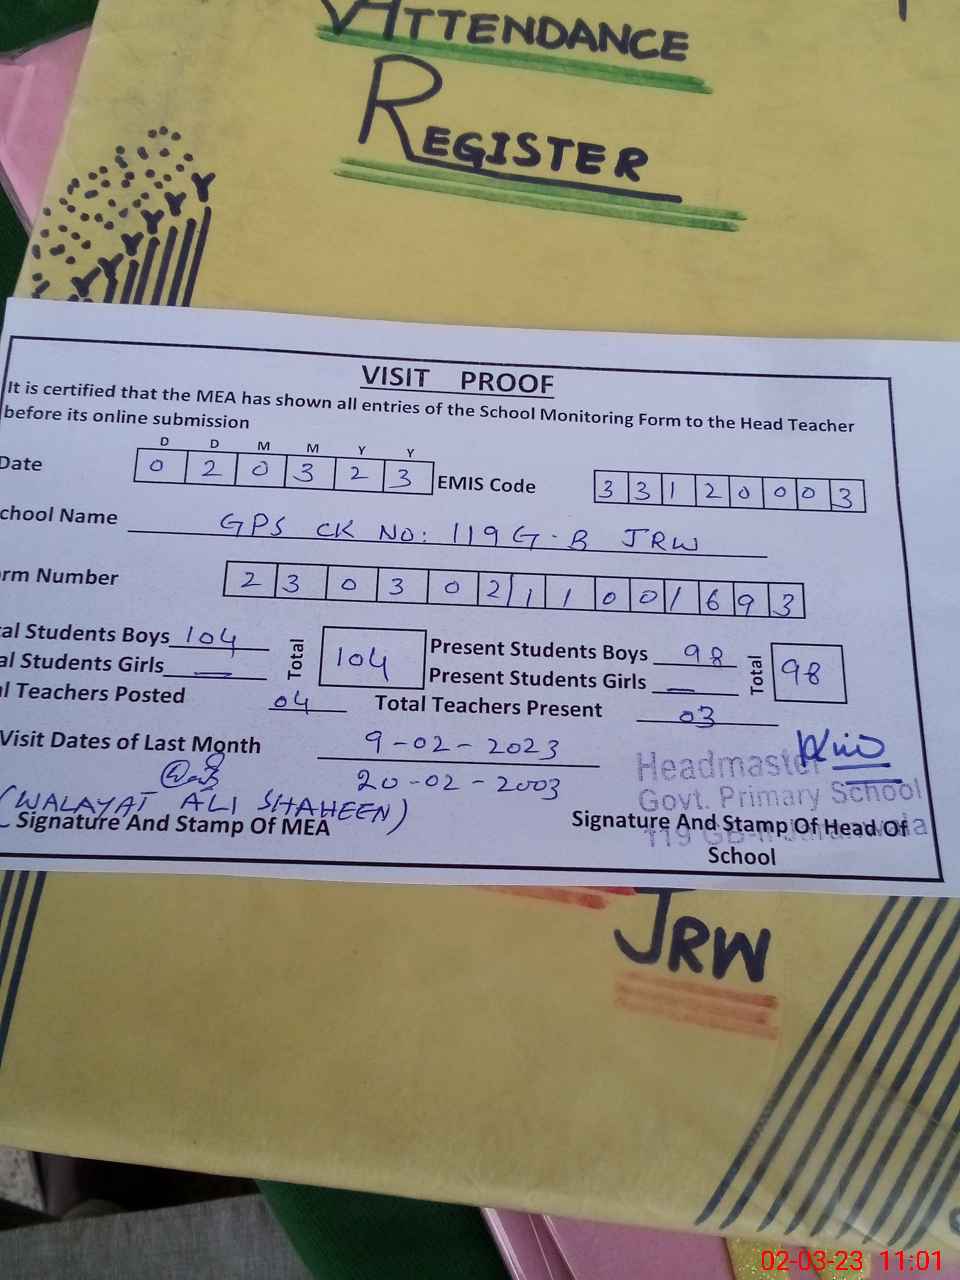 ATTENDANCE
REGISTER
VISIT PROOF
It is certified that the MEA has shown all entries of the School Monitoring Form to the Head Teacher
before its online submission
D D M M Y Y
Date 0 2 0 3 2 3 EMIS Code 3 3 1 2 0 0 0 3
chool Name GPS CK NO: 119 G-B JRW
rm Number 2 3 0 3 0 2 1 1 0 0 1 6 9 3
al Students Boys 104 Total 104 Present Students Boys 98 Total 98
al Students Girls — Present Students Girls —
l Teachers Posted 04 Total Teachers Present 03
Visit Dates of Last Month 9-02-2023
20-02-2003
Headmaster
Govt. Primary School
(WALAYAT ALI SHAHEEN)
Signature And Stamp Of MEA Signature And Stamp Of Head Of
School
119 GB
JRW
02-03-23 11:01